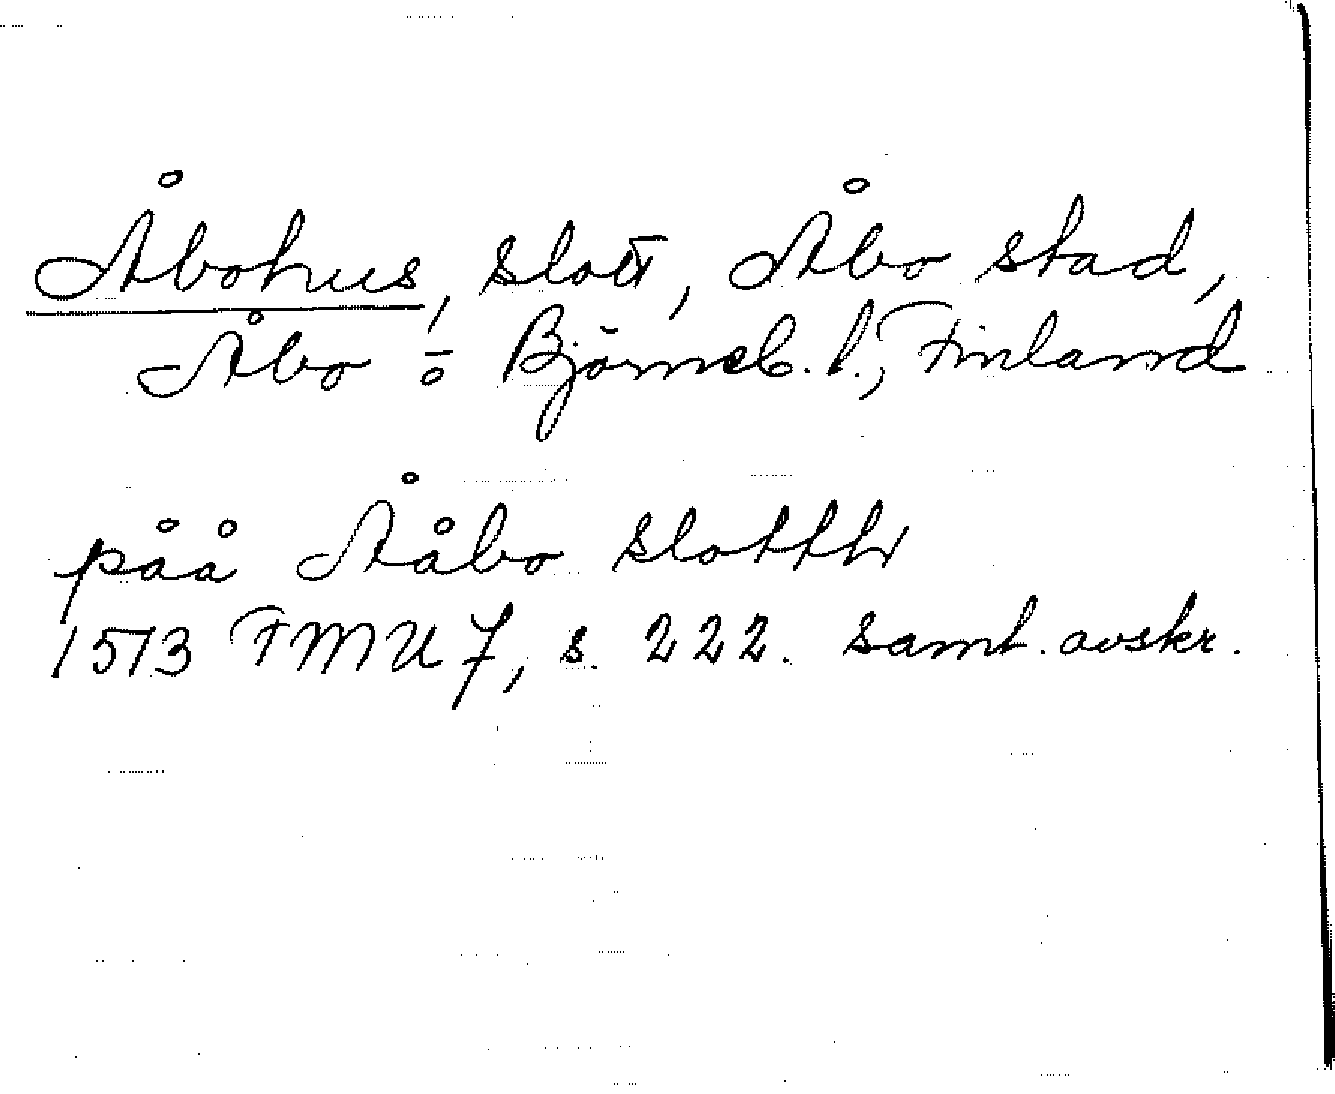 Åbohus, slott, Åbo stad,
Åbo o. Björneb. l., Finland
påå Ååbo slotth
1513 FMU 7, s. 222. samt. avskr.